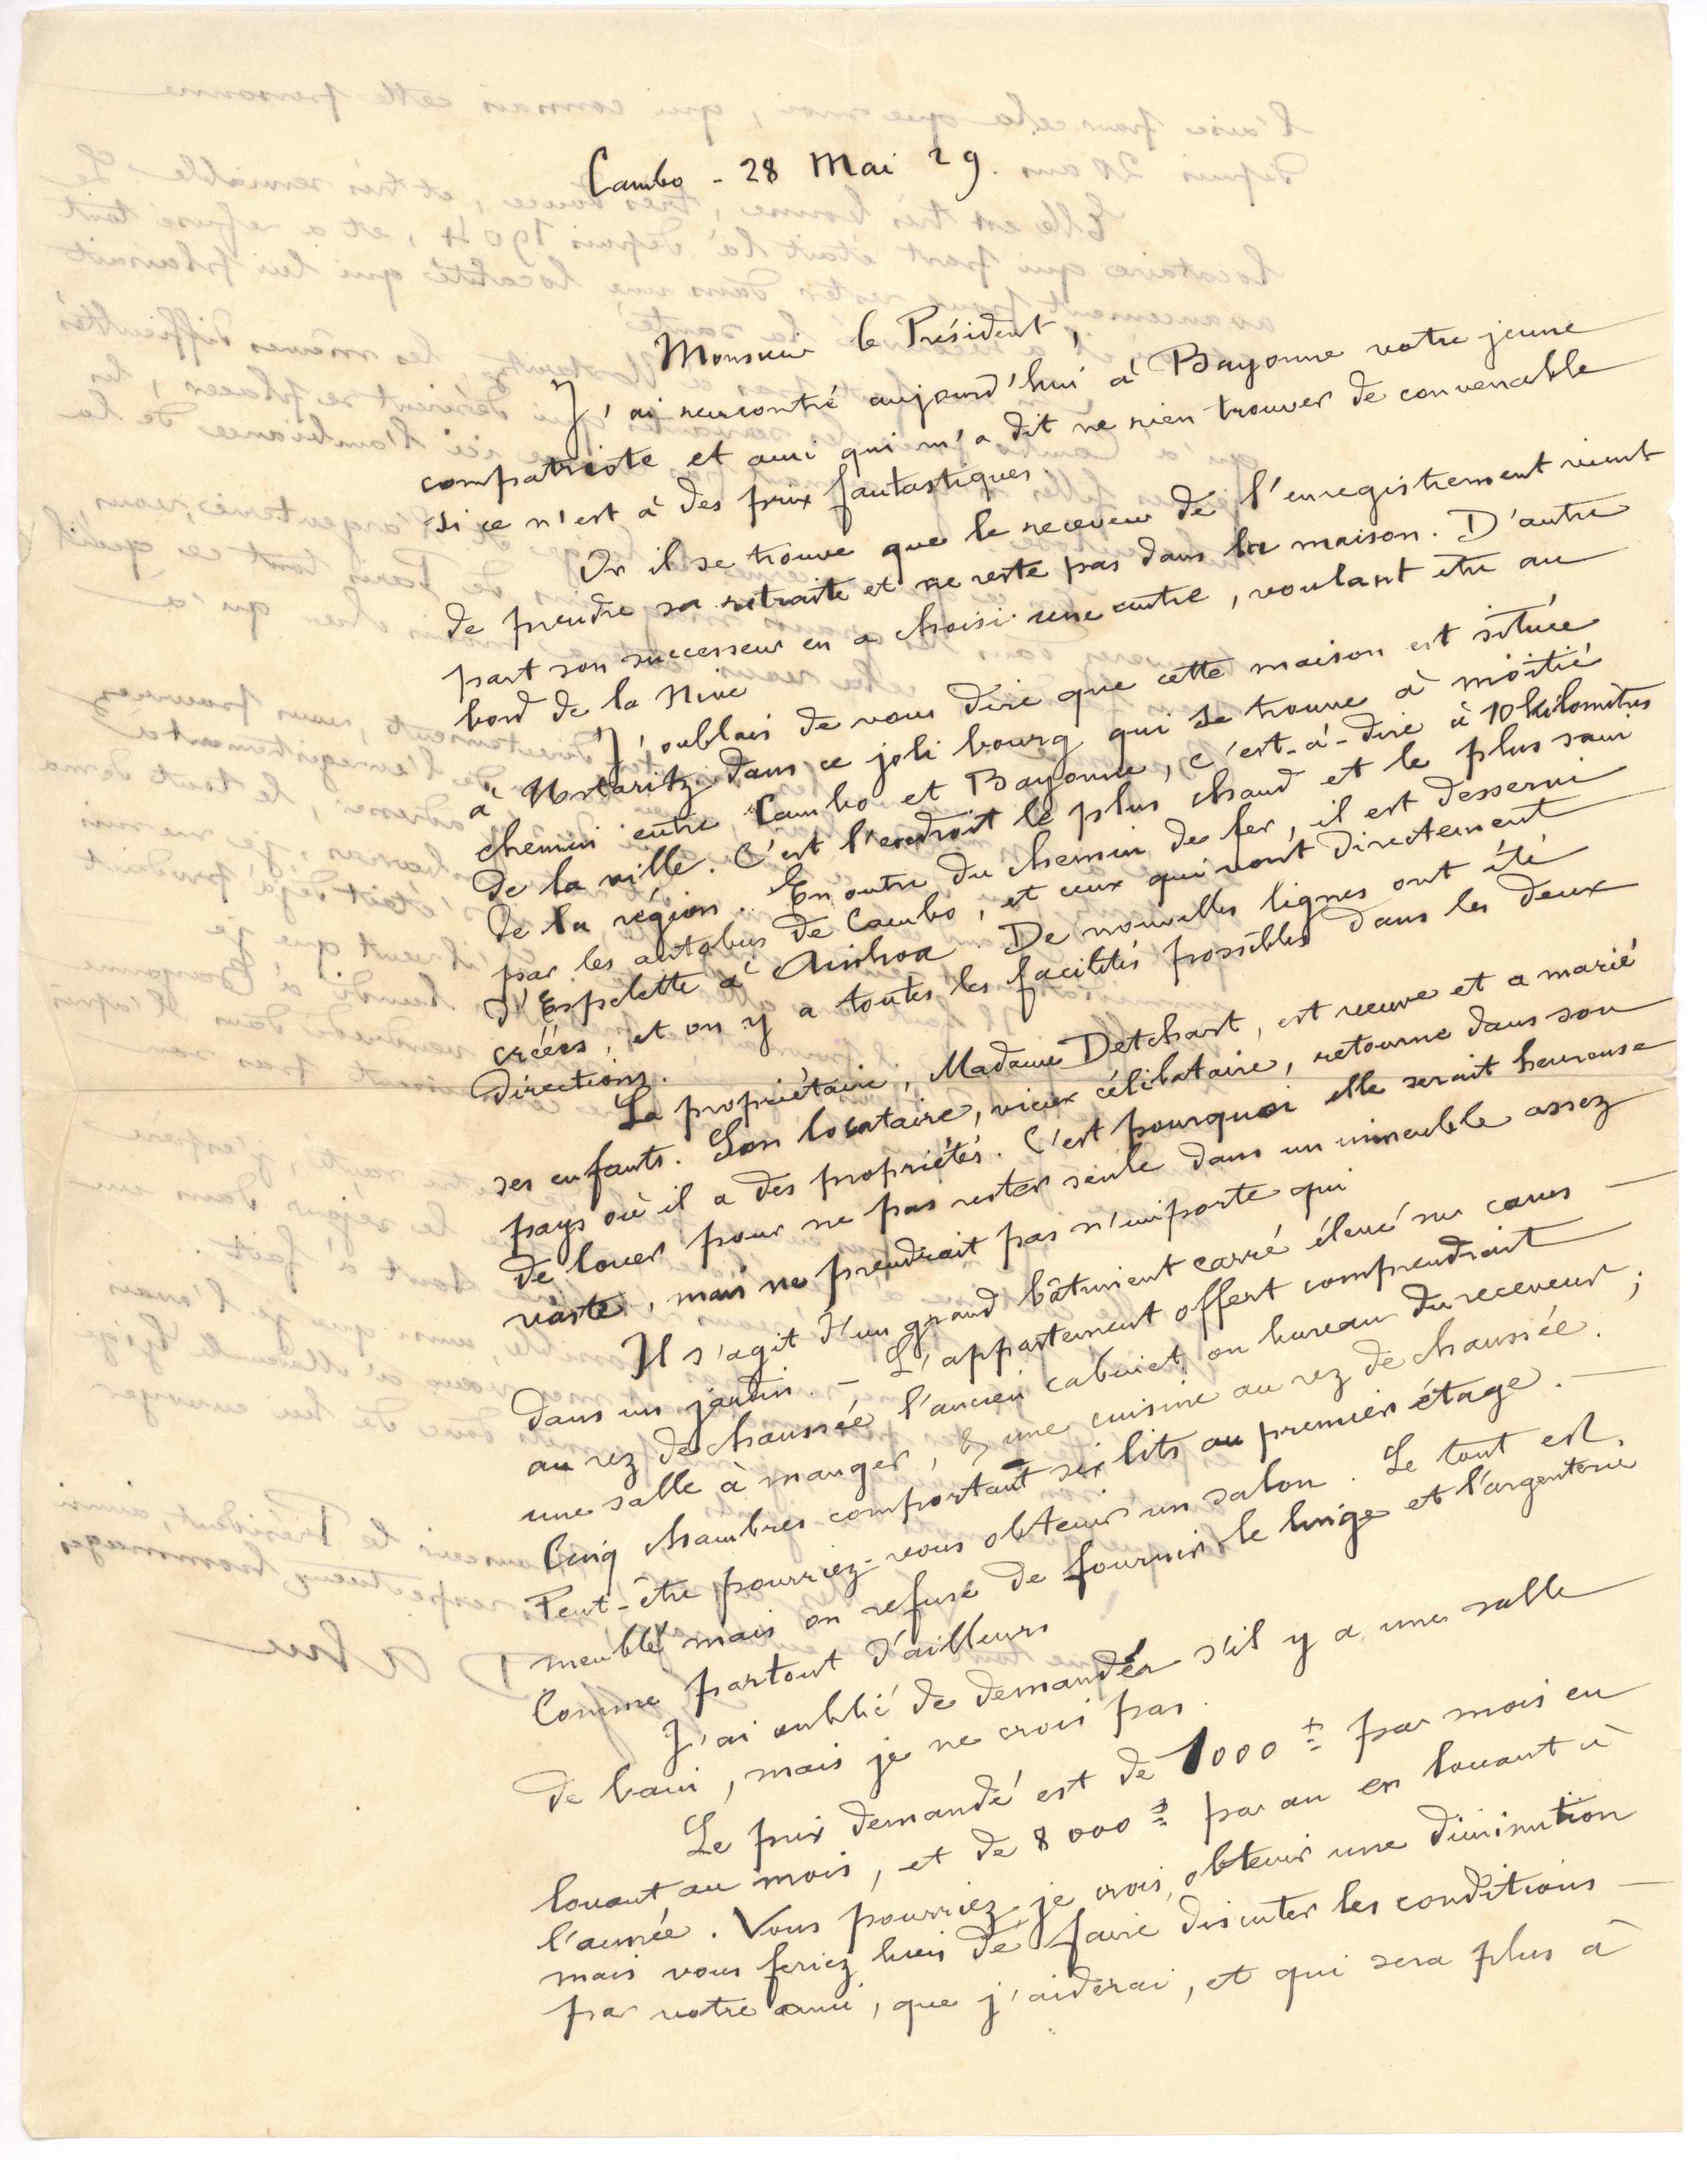 Cambo - 28 Mai 29.
Monsieur le Président,
J'ai rencontré aujourd'hui à Bayonne votre jeune
compatriote et ami qui m'a dit ne rien trouver de convenable
si ce n'est à des prix fantastiques
Or il se trouve que le receveur de l'enregistrement vient
de prendre sa retraite et ne reste pas dans la maison. D'autre
part son successeur en a choisi une autre, voulant être au
bord de la Nive
J'oubliais de vous dire que cette maison est située
à Ustaritz dans ce joli bourg qui se trouve à moitié
chemin entre Cambo et Bayonne, c'est-à-dire à 10 kilomètres
de la ville. C'est l'endroit le plus chaud et le plus sain
de la région. En outre du chemin de fer, il est desservi
par les autobus de Cambo, et ceux qui vont directement
d'Espelette à Ainhoa De nouvelles lignes ont été
créées, et on y a toutes les facilités possibles dans les deux
directions.
La propriétaire, Madame Detchart, est veuve et a marié
ses enfants. Son locataire, vieux célibataire, retourne dans son
pays où il a des propriétés. C'est pourquoi elle serait heureuse
de louer pour ne pas rester seule dans un immeuble assez
vaste, mais ne prendrait pas n'importe qui
Il s'agit d'un grand bâtiment carré élevé sur caves
dans un jardin. - L'appartement offert comprendrait
au rez de chaussée l'ancien cabinet ou bureau du receveur ;
une salle à manger, & une cuisine au rez de chaussée.
Cinq chambres comportant six lits au premier étage. -
Peut-être pourriez-vous obtenir un salon. Le tout est
meublé mais on refuse de fournir le linge et l'argenterie
Comme partout d'ailleurs
J'ai oublié de demander s'il y a une salle
de bain, mais je ne crois pas.
Le prix demandé est de 1000 f par mois en
louant au mois, et de 8 000 f par an en louant à
l'année. Vous pourriez, je crois, obtenir une diminution
mais vous feriez bien de faire discuter les conditions -
par votre ami, que j'aiderai, et qui sera plus à